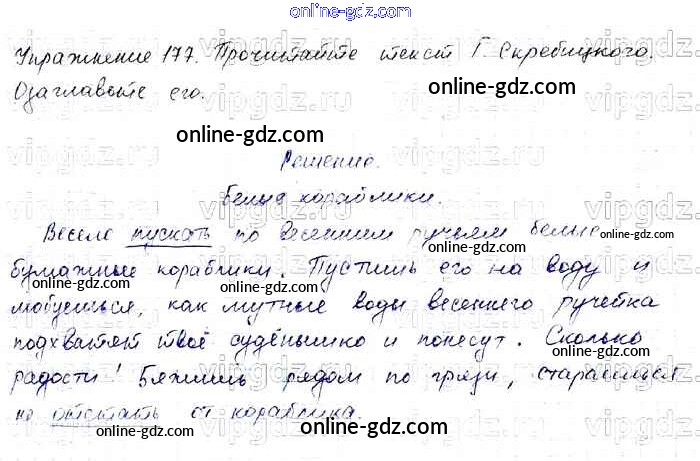 online-gdz.com
Упражнение 177. Прочитайте текст Г. Скребицкого.
Озаглавьте его.
online-gdz.com
online-gdz.com
Решение.
Белые кораблики.
Весело пускать по весенним ручьям белые
online-gdz.com
бумажные кораблики. Пустишь его на воду и
любуешься, как мутные воды весеннего ручейка
подхватят твоё судёнышко и понесут. Сколько
online-gdz.com
радости! Бежишь рядом по грязи, стараешься
не отстать от кораблика.
online-gdz.com
online-gdz.com
vipgdz.ru